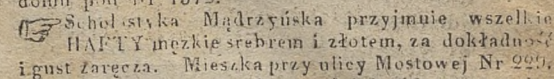 Scholastyka Mądrzyńska przyjmuie wszelkie
HAFTY męzkie srebrem i złotem, za dokładność
i gust zaręcza. Mieszka przy ulicy Mostowej Nr 229.